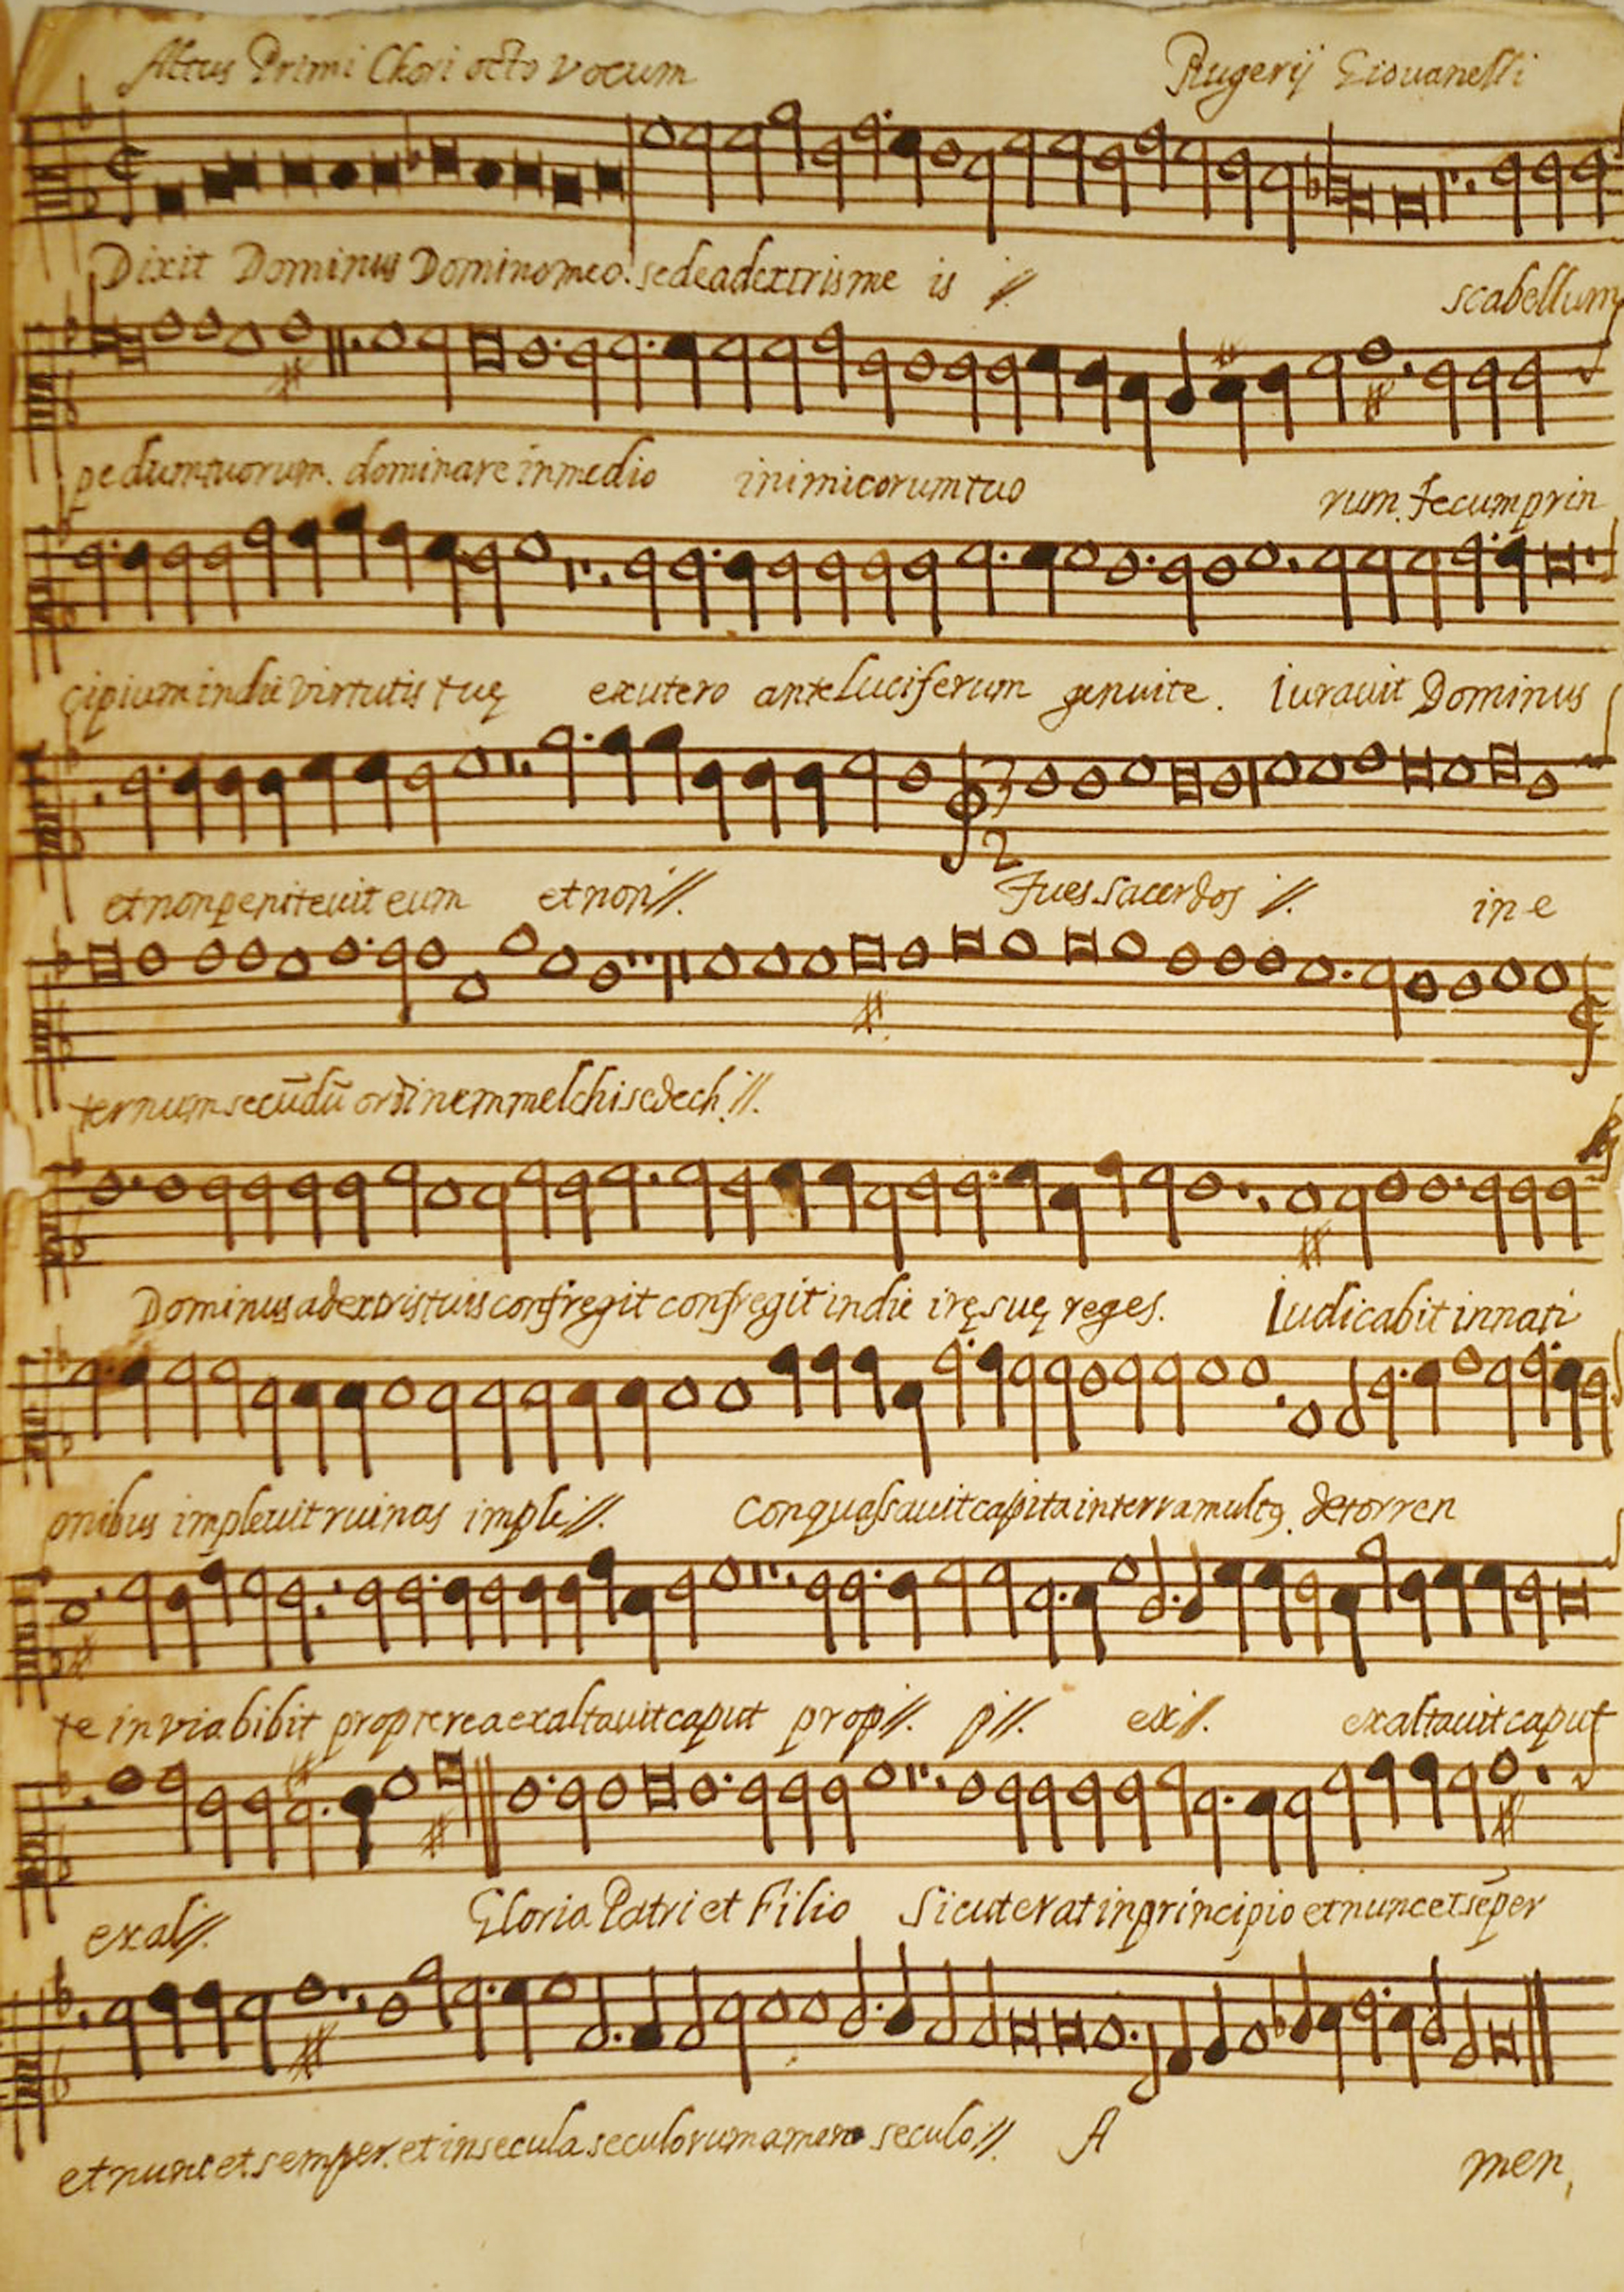 Altus Primi Chori octo vocum Rugerij Giovanelli
Dixit Dominus Domino meo. sede a dextris me is ij. scabellum
pedum tuorum. dominare in medio inimicorum tuo rum. Tecum prin
cipium in die virtutis tuę ex utero ante Luciferum genui te. Iuravit Dominus
et non penitevit eum et non ij. Tu es Sacerdos ij. in e
ternum secūdū ordinem melchisedech ij.
Dominus a dextris tuis confregit confregit in die irę suę reges. Iudicabit in nati
onibus implevit ruinas imple ij. Conquassavit capita in terra multo. de torren
te in via bibit propterea exaltavit caput prop ij. p ij. ex ij. exaltavit caput
exal ij. Gloria Patri et Filio Sicut erat in principio et nunc et sēper
et nunc et semper. et in secula seculorum amen seculo ij. A men,